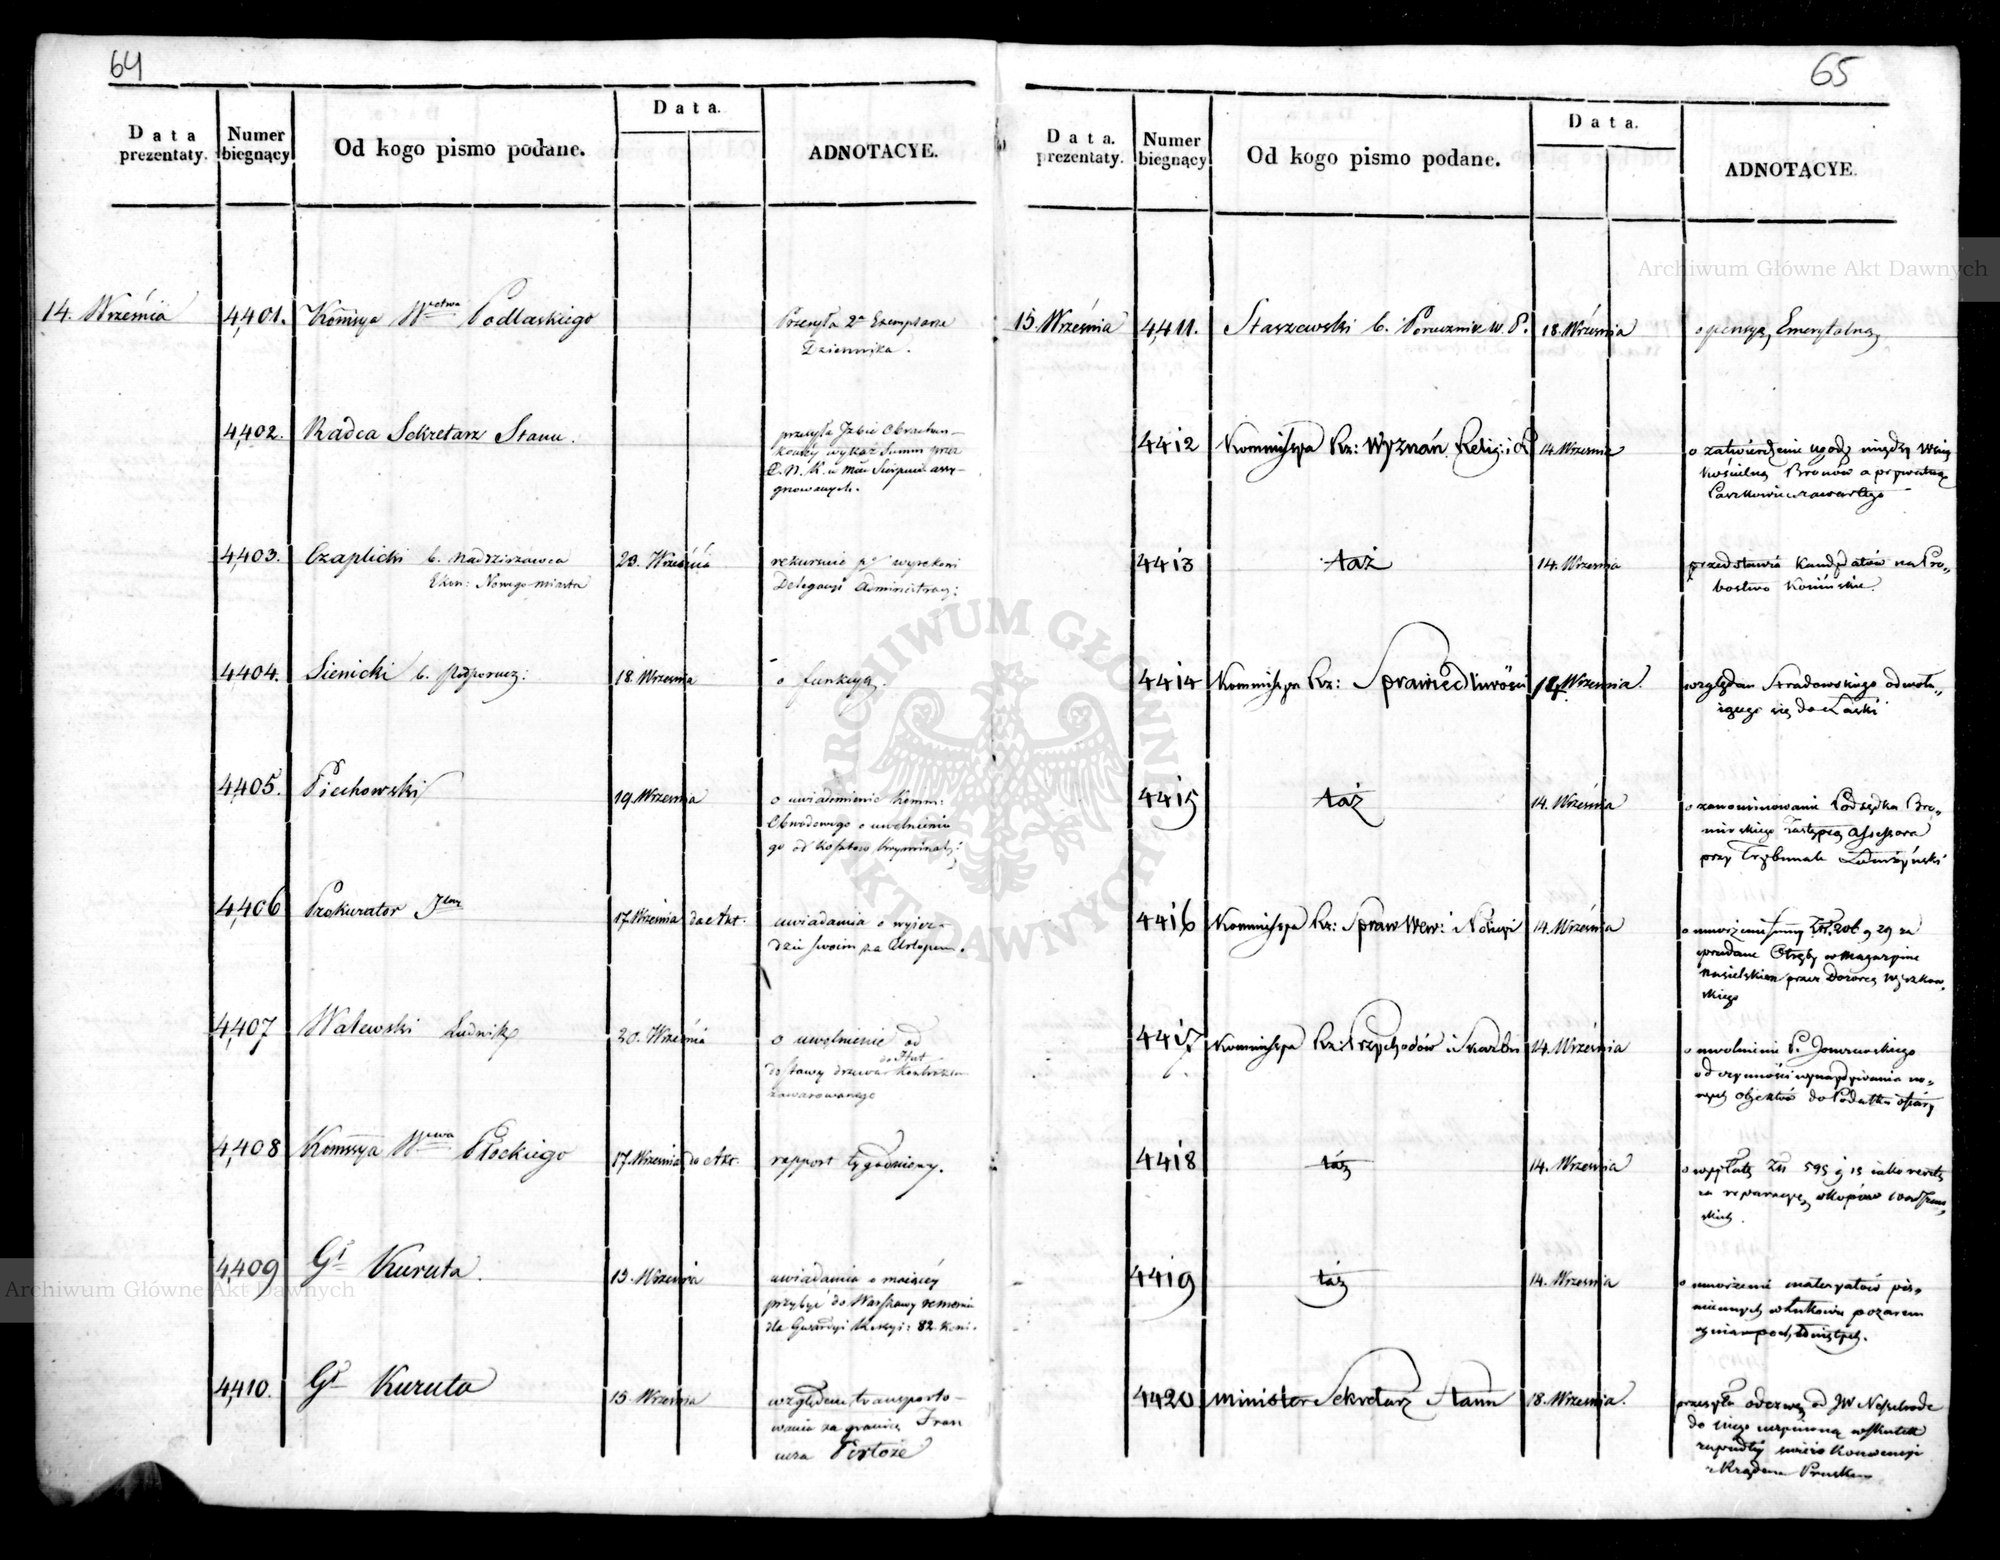 64
Data prezentaty.
Numer biegnący
Od kogo pismo podane.
Data.
ADNOTACYE.
14. Września
4401.
Komissya Wództwa Podlaskiego
Przesyła 2a Exemplarze
Dziennika.
4402.
Radca Sekretarz Stanu.
przesyła Izbie Obrachun-
kowey wykaz Summ przez
w mcu Sierpniu assy-
gnowanych.
4403.
Czaplicki b. Naddzierżawca
Ekon: Nowego miasta
23. Wrześnià
Delegacyi Administracy:
4404.
Sienicki b. Podporucz:
18. Wrzesnia
o funkcyą.
4405.
Piechowski
19. Wrzesnia
o uwiadomienie Komm:
Obwodowego o uwolnieniu
go od kosztow kryminaly:
4406
Prokurator Jlny
17. Wrzesnia do Akt.
uwiadamia o wyjez-
dzie swoim za Urlopem.
4407
Walewski Ludwik
20. Wrześnià
o uwolnienie od
dostawy drzewa
4408
Komssya Wwa Płockiego
17. Wrzesnia do Akt.
rapport tygodniowy.
4409
Gł Kuruta.
15. Wrzesnià
uwiadamia o maiącéy
przybyć do Warszawy remonie
dla Gwardyi 82. koni.
4410.
Gł Kuruta
15. Wrzesnia
względem transporto-
wania za granicę Fran
65
Data. prezentaty.
Numer biegnący
Od kogo pismo podane.
Data.
ADNOTACYE.
15. Września
4411.
Staszewski b. Porucznik W. P.
18. Wrzesnia
o pensyą Emerytalną
4412
Kommissya Rz: Wyznań Relig: i
14. Wrzesnia
o zatwierdzenie ugody między Wsią
Kościelną Bronów a prywatną
4413
taż
14. Wrzesnia
przedstawia kandydatów na Pro-
bostwo
4414
Kommissya Rz: Sprawiedliwości
14. Wrzesnia.
względem Stradowskiego odwołu-
iącego się do Łaski
4415
taż
14. Wrześnìa
o zanominowanie Podsędka Bro-
Zastępcą Assessora
przy Trybunale
4416
Kommissya Rz: Spraw Wew: i Policyi
14. Wrześnìa
o umorzenie summy Złł. 206 g 29 za
sprzedane Otręby w Magazynie
Nasielskim przez Dozorcę Wyszkow-
skiego
4417
Kommissya Rz: Przychodów i Skarbu
14. Wrześnìa
o uwolnienie P.
od czynności wynaydywania no-
wych objektów do Podatku ofiary
4418
táz
14. Wrzesnia
o wypłatę Złł 595 g 15 iako resztę
za reparacyę okopów
skich.
4419
táz
14. Wrzesnia
o umorzenie materyałów piś-
miennych w Łukowie pożarem
4420
Minister Sekretarz Stanu
18. Wrzesnia.
przesyła odezwę od JW Nesselrode
do niego uczynioną w skutek
konwencyi
z Rządem Pruskim
Archiwum Główne Akt Dawnych
Archiwum Główne Akt Dawnych
ARCHIWUM GŁÓWNE AKT DAWNYCH